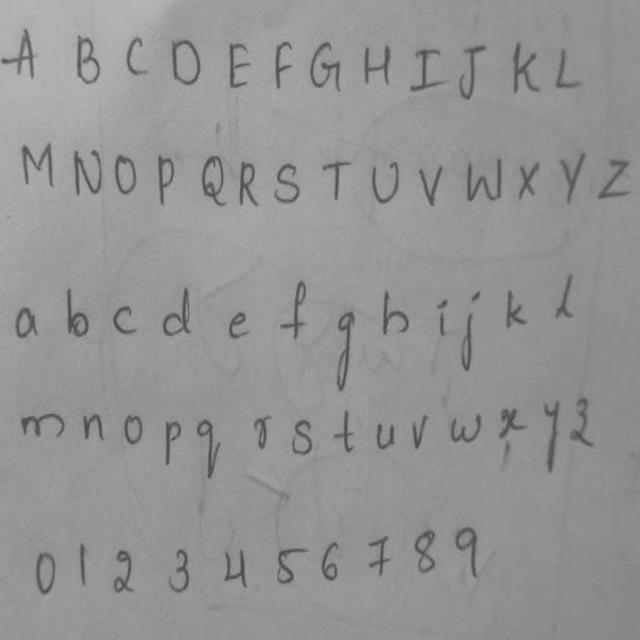 A B C D E F G H I J K L
M N O P Q R S T U V W X Y Z
a b c d e f g h i j k l
m n o p q r s t u v w x y z
0 1 2 3 4 5 6 7 8 9